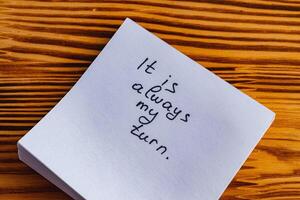 It is
always
my
turn.